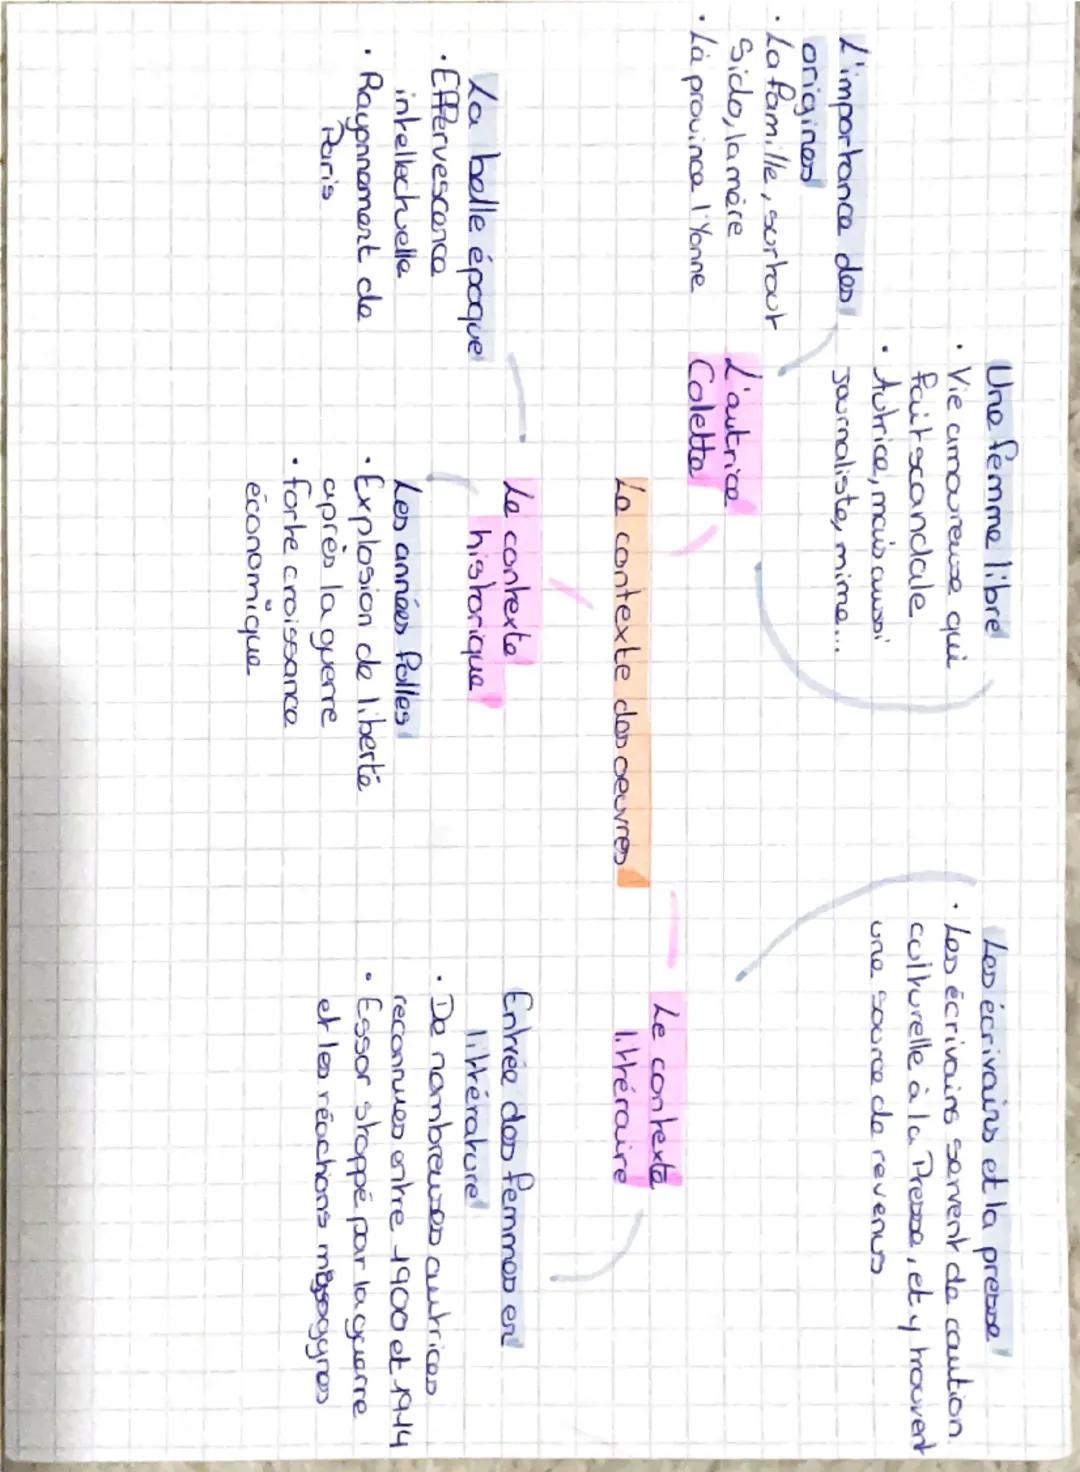 Une femme libre
• Vie amoureuse qui
fait scandale
• Autrice, mais aussi
journaliste, mime...
Les écrivains et la presse
• Les écrivains servent de caution
culturelle à la Presse, et y trouvent
une source de revenus
L'importance des
origines
• La famille, surtout
Sido, la mère
• La province l'Yonne
L'autrice
Colette
Le contexte
littéraire
Le contexte des oeuvres
Le contexte
historique
La belle époque
• Effervescence
intellectuelle
• Rayonnement de
Paris
Les années folles
• Explosion de liberté
après la guerre
• forte croissance
économique
Entrée des femmes en
littérature
• De nombreuses autrices
reconnues entre 1900 et 1914
• Essor stoppé par la guerre
et les réactions misogynes